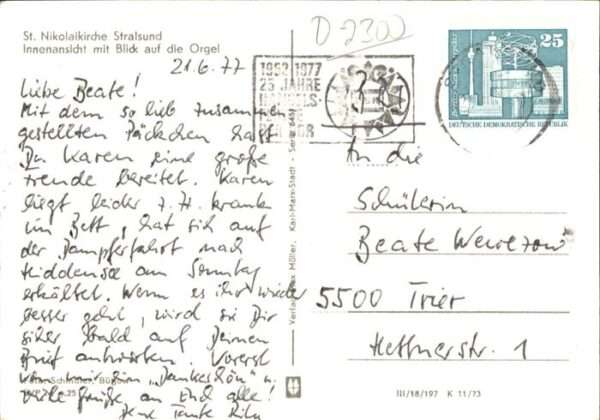 St. Nikolaikirche Stralsund
Innenansicht mit Blick auf die Orgel
21.6.77
Liebe Beate!
Mit dem so lieb zusammen
gestellten Päckchen hast
Du Karen eine große
Freude bereitet. Karen
liegt leider z. Zt. krank
im Bett, hat sich auf
der Dampferfahrt nach
Hiddensee am Sonntag
erkältet. Wenn es ihr wieder
besser geht, wird sie Dir
sicher bald auf Deinen
Brief antworten. Vorerst
von mir ein "Dankeschön" u.
viele Grüße an Euch alle!
Tante
Verlag Max Müller, Karl-Marx-Stadt - Serie
D-2300
1952 1977
25 JAHRE
25
DEUTSCHE DEMOKRATISCHE REPUBLIK
An die
Schülerin
Beate
5500 Trier
Hettnerstr. 1
III/18/197 K 11/73